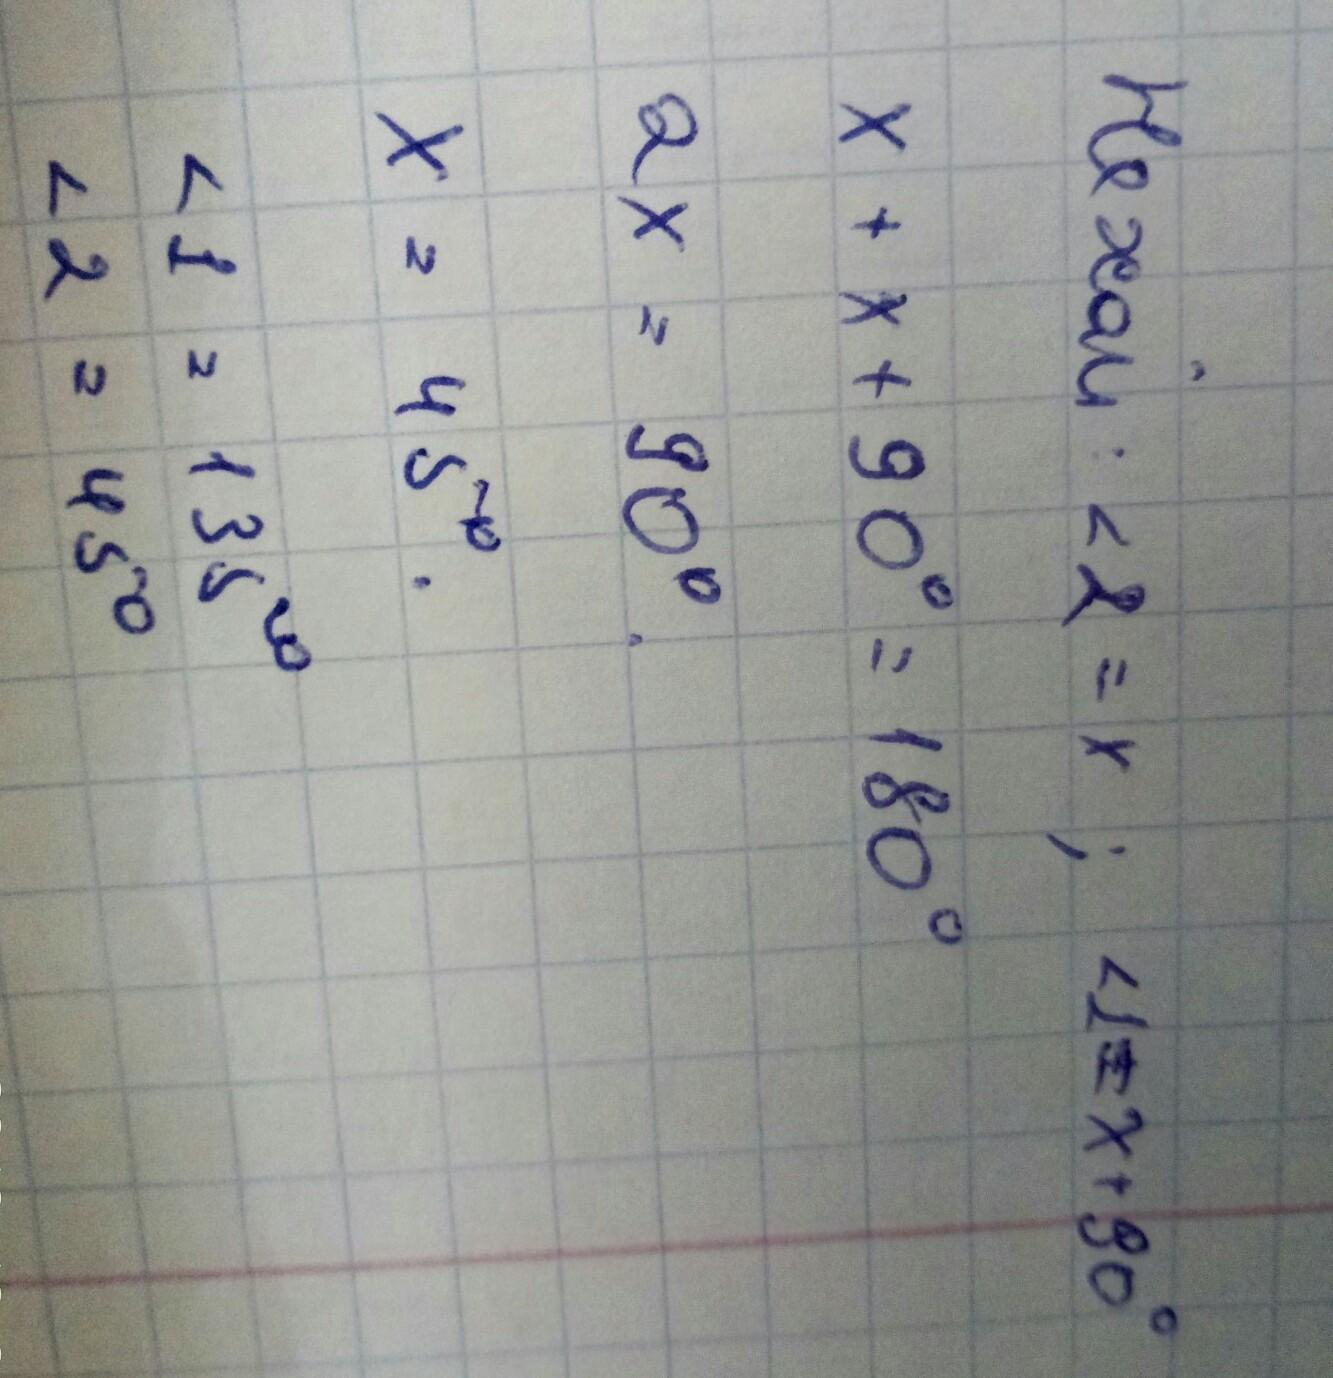 Нехай: <2 = x ; <1 = x + 90°
x + x + 90° = 180°
2x = 90°.
x = 45°.
<1 = 135°
<2 = 45°